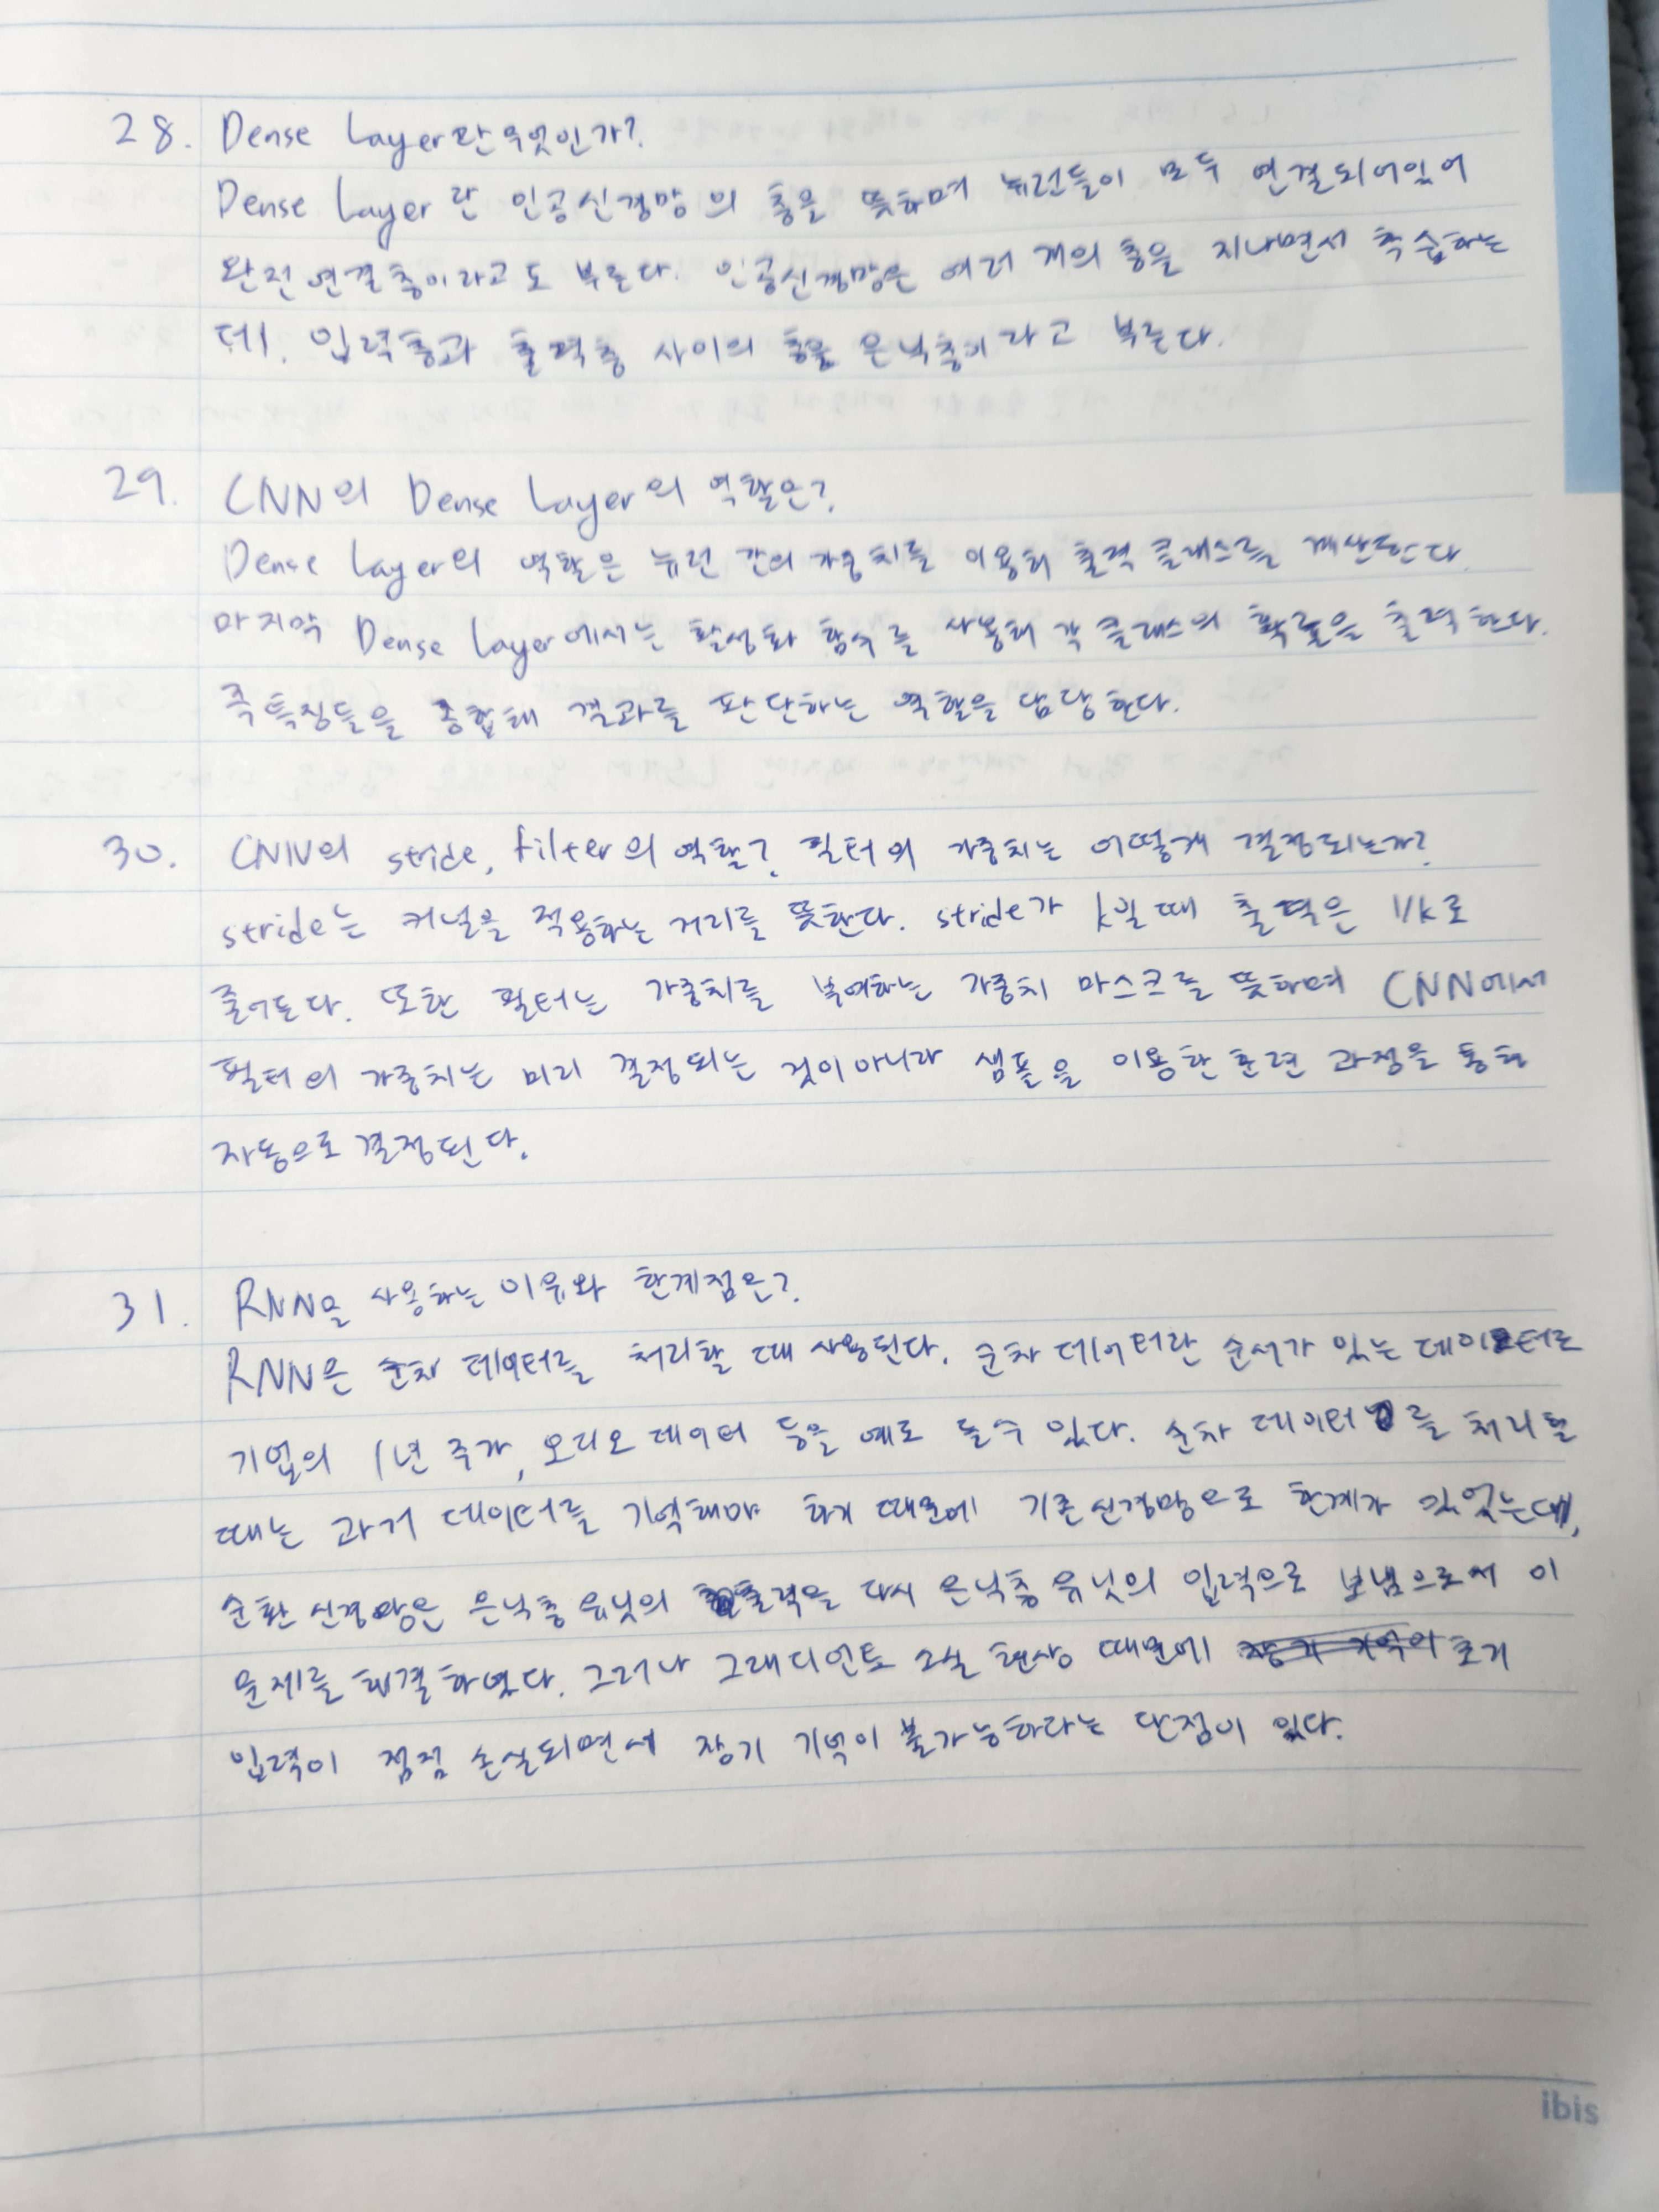 28. Dense Layer란 무엇인가?
Dense Layer란 인공신경망의 층을 뜻하며 뉴런들이 모두 연결되어있어
완전 연결층이라고도 부른다. 인공신경망은 여러 개의 층을 지나면서 학습하는
데, 입력층과 출력층 사이의 층을 은닉층이라고 부른다.
29. CNN의 Dense Layer의 역할은?
Dense Layer의 역할은 뉴런 간의 가중치를 이용해 출력 클래스를 계산한다.
마지막 Dense Layer에서는 활성화 함수를 사용해 각 클래스의 확률을 출력한다.
즉 특징들을 종합해 결과를 판단하는 역할을 담당한다.
30. CNN의 stride, filter의 역할? 필터의 가중치는 어떻게 결정되는가?
stride는 커널을 적용하는 거리를 뜻한다. stride가 k일 때 출력은 1/k로
줄어든다. 또한 필터는 가중치를 부여하는 가중치 마스크를 뜻하며 CNN에서
필터의 가중치는 미리 결정되는 것이 아니라 샘플을 이용한 훈련 과정을 통해
자동으로 결정된다.
31. RNN을 사용하는 이유와 한계점은?
RNN은 순차 데이터를 처리할 때 사용된다. 순차 데이터란 순서가 있는 데이터로
기업의 1년 주가, 오디오 데이터 등을 예로 들 수 있다. 순차 데이터를 처리할
때는 과거 데이터를 기억해야 하기 때문에 기존 신경망으로 한계가 있었는데,
순환 신경망은 은닉층 유닛의 출력을 다시 은닉층 유닛의 입력으로 보냄으로서 이
문제를 해결하였다. 그러나 그래디언트 소실 현상 때문에 초기
입력이 점점 손실되면서 장기 기억이 불가능하다는 단점이 있다.
ibis